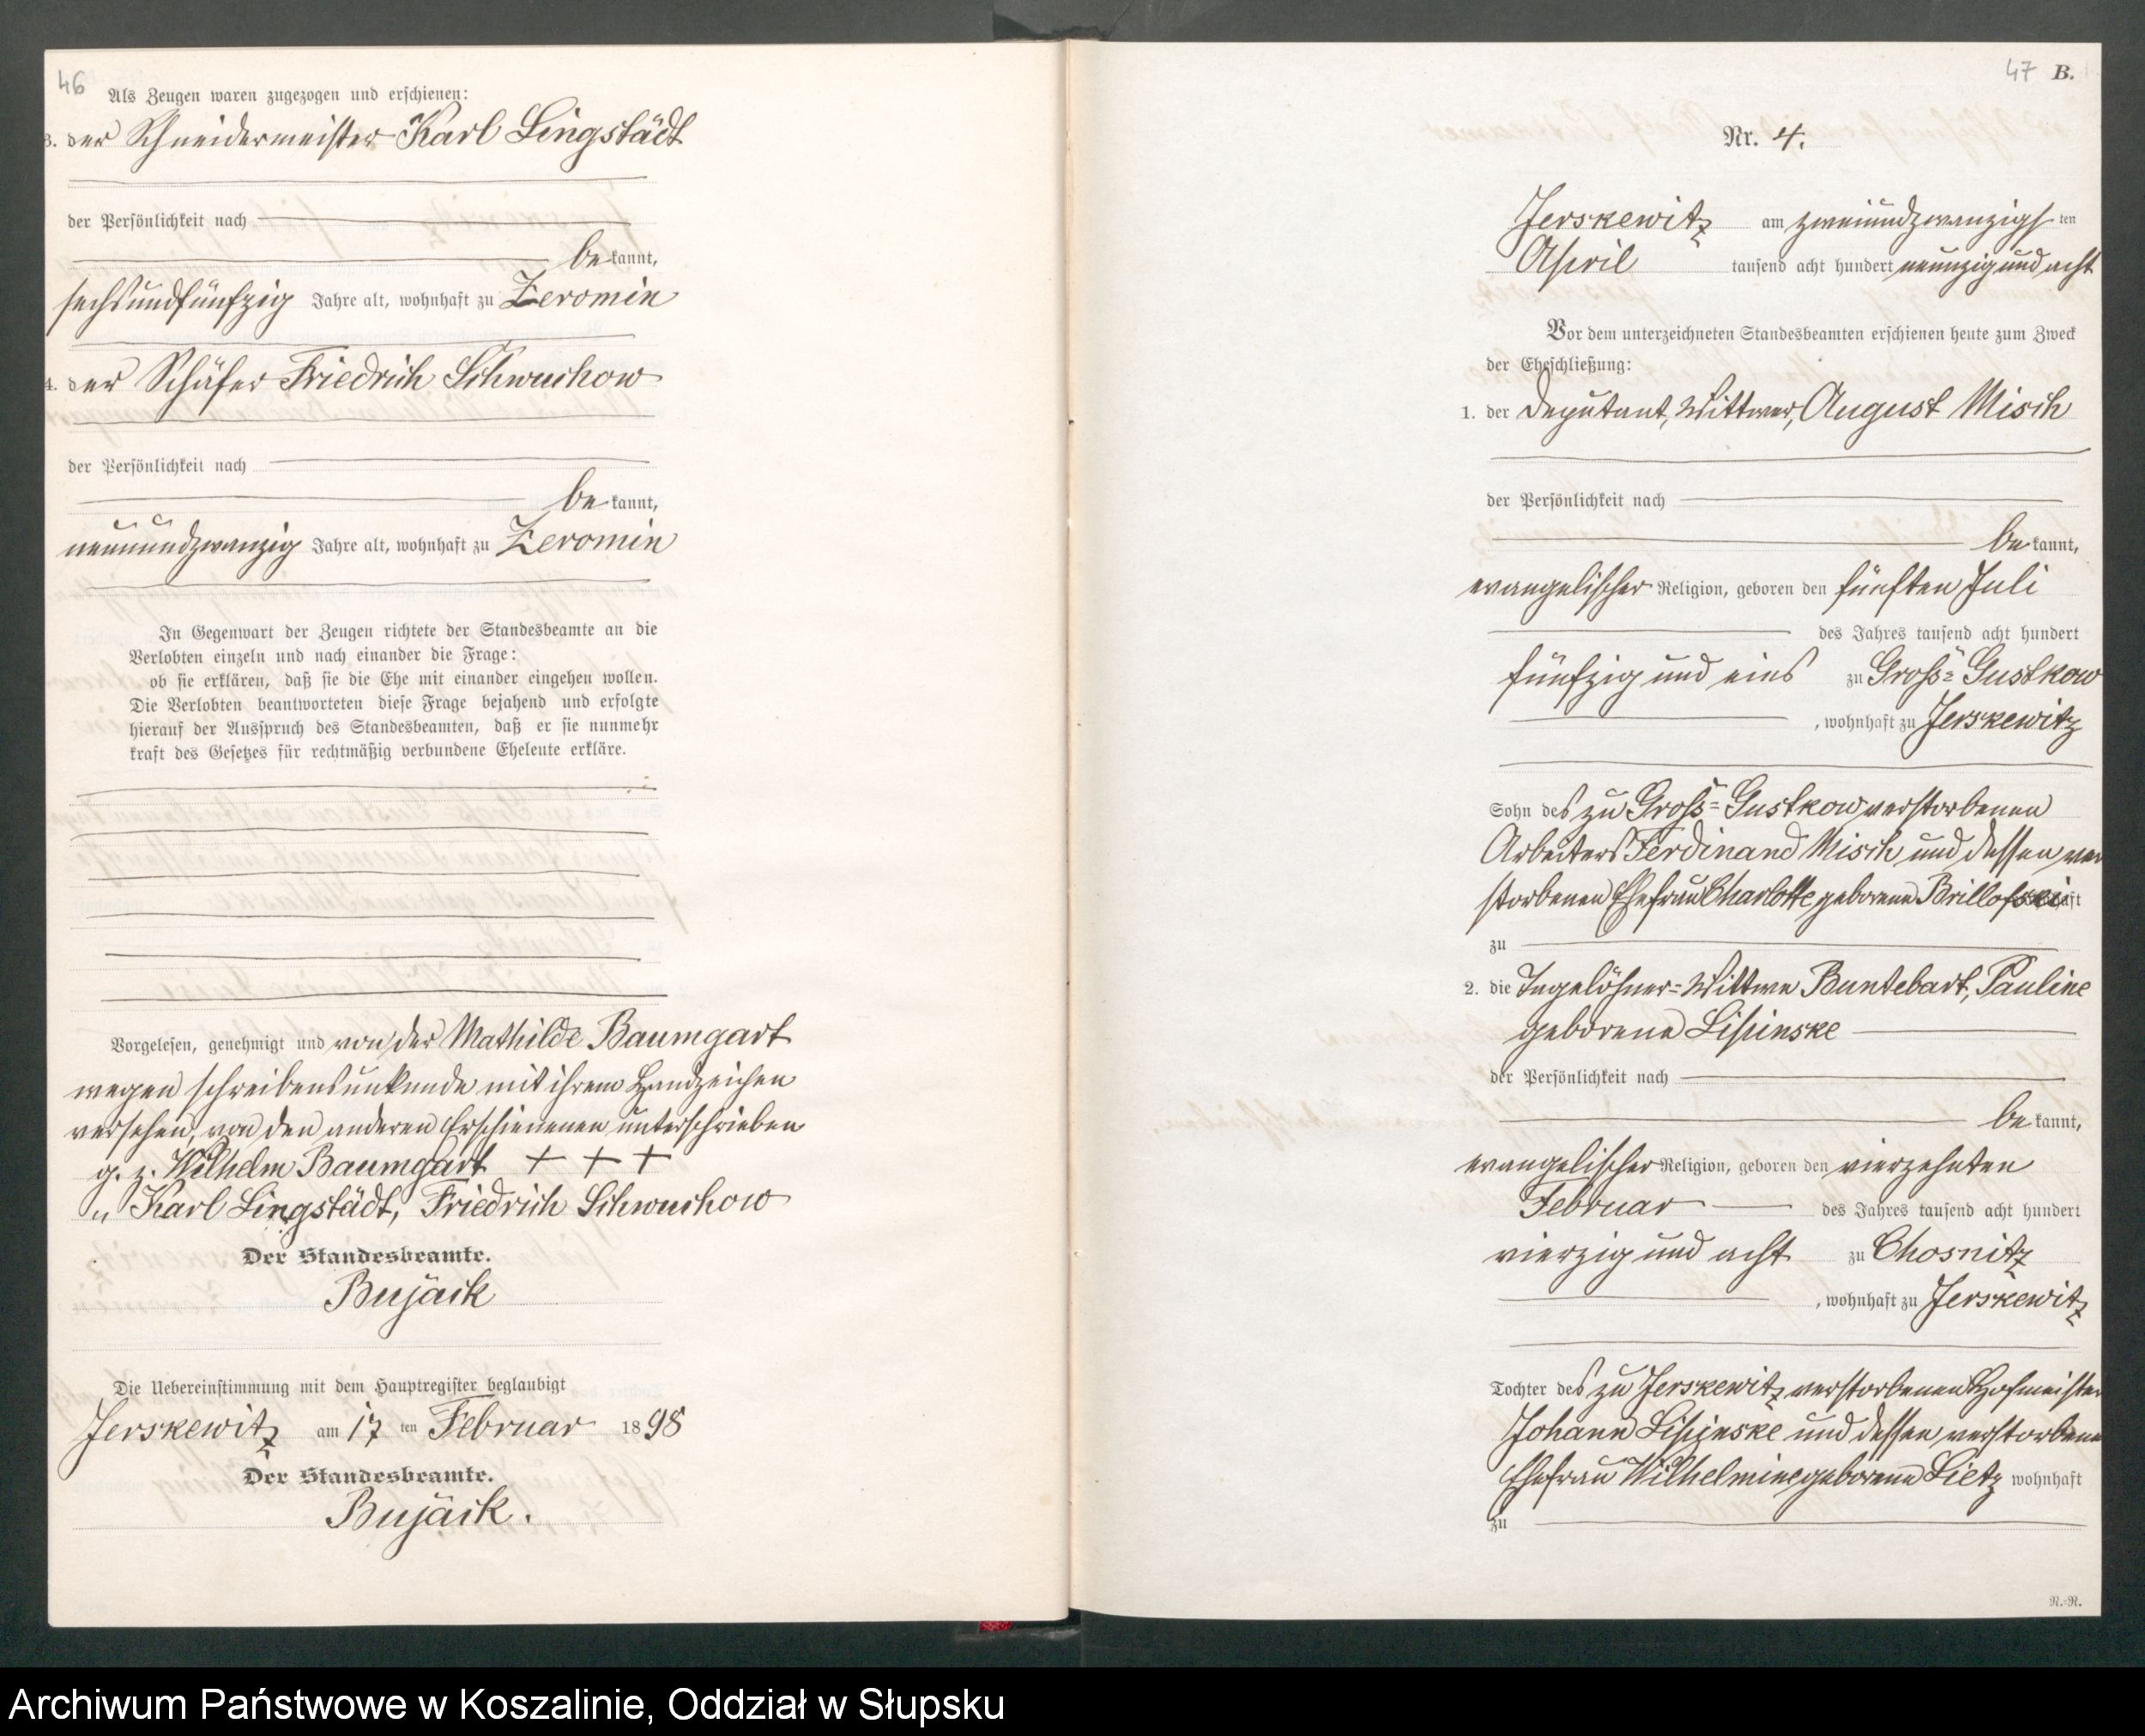 46
Als Zeugen waren zugezogen und erschienen:
3. der Schneidermeister Karl Lingstädt
der Persönlichkeit nach
bekannt,
sechsundfünfzig Jahre alt, wohnhaft zu Zeromin
4. der Schäfer Friedrich Schwuchow
der Persönlichkeit nach
bekannt,
neunundzwanzig Jahre alt, wohnhaft zu Zeromin
In Gegenwart der Zeugen richtete der Standesbeamte an die
Verlobten einzeln und nach einander die Frage:
ob sie erklären, daß sie die Ehe mit einander eingehen wollen.
Die Verlobten beantworteten diese Frage bejahend und erfolgte
hierauf der Ausspruch des Standesbeamten, daß er sie nunmehr
kraft des Gesetzes für rechtmäßig verbundene Eheleute erkläre.
Vorgelesen, genehmigt und von der Mathilde Baumgart
wegen schreibensunkunde mit ihrem Handzeichen
versehen, von den anderen Erschienenen unterschrieben
g. z. Wilhelm Baumgart + + +
„ Karl Lingstädt, Friedrich Schwuchow
Der Standesbeamte.
Bujäck
Die Uebereinstimmung mit dem Hauptregister beglaubigt
Jerskewitz am 17 ten Februar 1898
Der Standesbeamte.
Bujäck.
47 B.
Nr. 4.
Jerskewitz am zweiundzwanzigsten
April tausend acht hundert neunzig und acht
Vor dem unterzeichneten Standesbeamten erschienen heute zum Zweck
der Eheschließung:
1. der Deputant, Wittwer, August Misch
der Persönlichkeit nach
bekannt,
evangelischer Religion, geboren den fünften Juli
des Jahres tausend acht hundert
fünfzig und eins zu Gross=Gustkow
, wohnhaft zu Jerskewitz
Sohn des zu Gross=Gustkow verstorbenen
Arbeiters Ferdinand Misch und dessen ver
storbenen Ehefrau Charlotte geborene Brillofski
zu
2. die Tagelöhner=Wittwe Buntebart, Pauline
geborene Lipinske
der Persönlichkeit nach
bekannt,
evangelischer Religion, geboren den vierzehnten
Februar des Jahres tausend acht hundert
vierzig und acht zu Chosnitz
, wohnhaft zu Jerskewitz
Tochter des zu Jerskewitz verstorbenen Hofmeister
Johann Lipinske und dessen verstorbene
Ehefrau Wilhelmine geborene Lietz wohnhaft
zu
N.-N.
Archiwum Państwowe w Koszalinie, Oddział w Słupsku